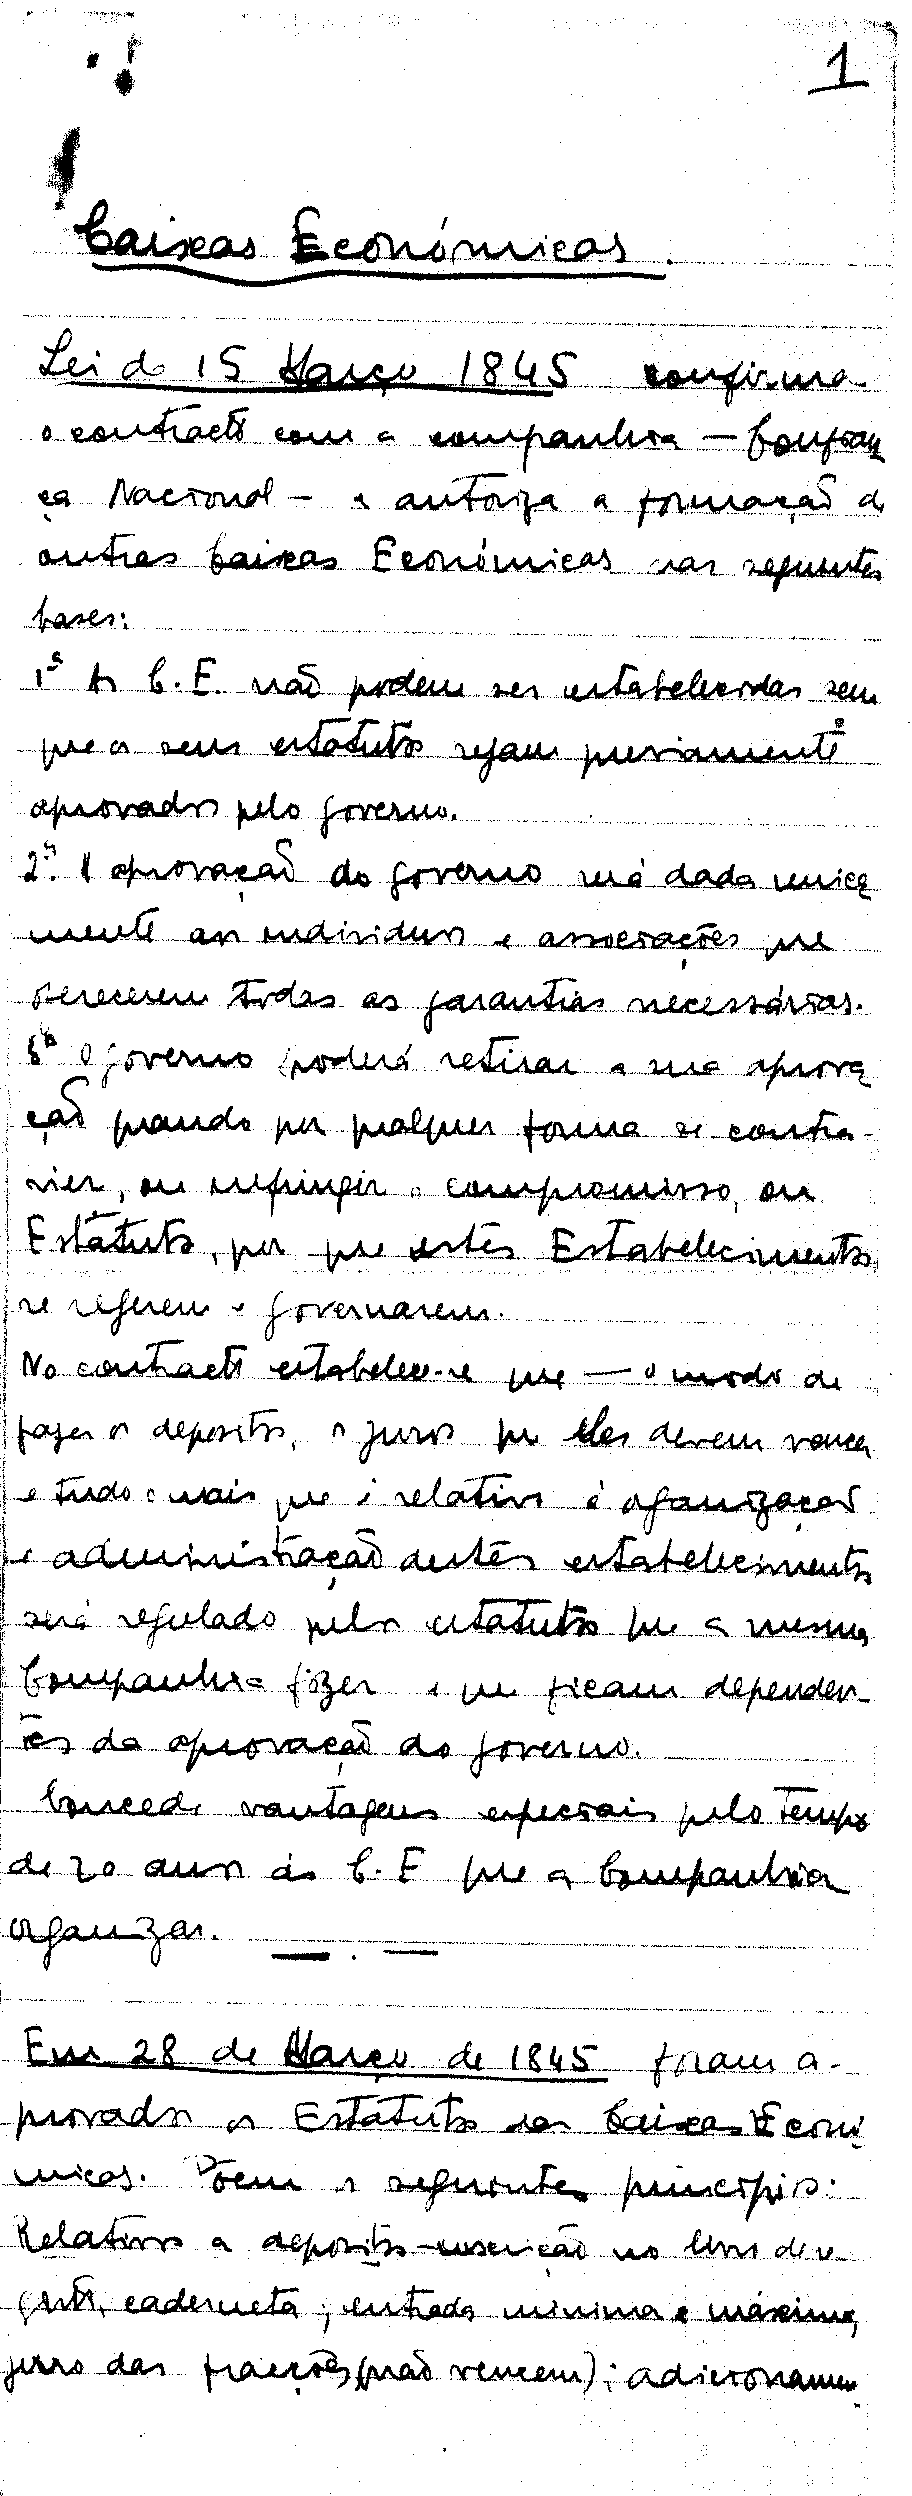 1
Caixas Económicas.
Lei de 15 Março 1845 confirma
o contracto com a companhia — Confian
ça Nacional — e autoriza a formação de
outras Caixas Económicas nas seguintes
bases:
1ª As C. E. não podem ser estabelecidas sem
que os seus estatutos sejam previamente
aprovados pelo governo.
2ª. A aprovação do governo será dada unica
mente aos individuos e associações que
oferecerem todas as garantias necessárias.
3ª O governo poderá retirar a sua aprova
ção quando por qualquer forma se contra-
vier, ou infringir o compromisso, ou
Estatuto, por que estes Estabelecimentos
se regerem e governarem.
No contracto estabelece-se que — o modo de
fazer os depositos, o juros que eles devem vencer
e tudo o mais que é relativo á organização
e administração destes estabelecimentos
será regulado pelos estatutos que a mesma
Companhia fizer e que ficam dependen-
tes da aprovação do governo.
Concede vantagens especiais pelo tempo
de 20 anos ás C. E que a Companhia
organizar.
Em 28 de Março de 1845 foram a-
provados os Estatutos das Caixas Econó
micas. Põem os seguintes principios:
Relativos a depositos inscrição no livro de
caderneta; entrada minima e máxima,
juro das fracções (não vencem); adicionamen